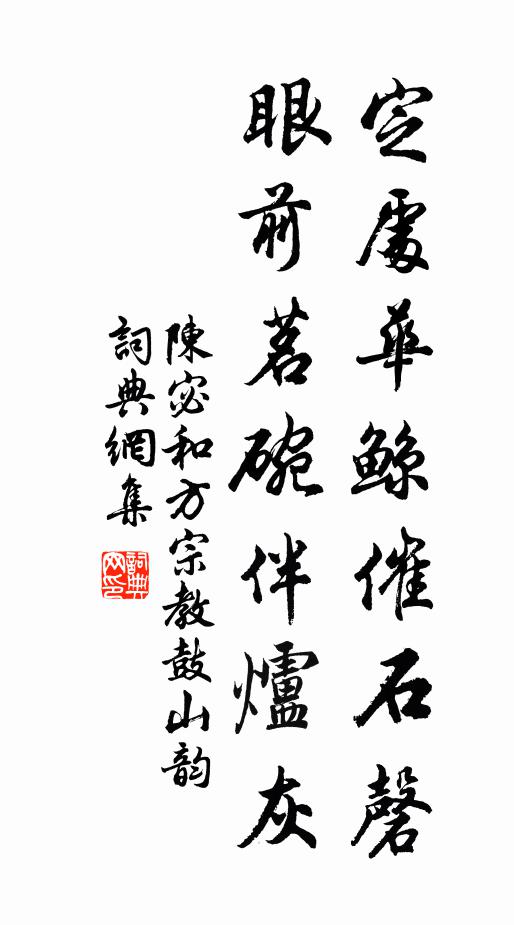 定處華鲸催石磬
眼前茗碗伴爐灰
陳宓和方宗教鼓山韵
詞典網集
詞典網印